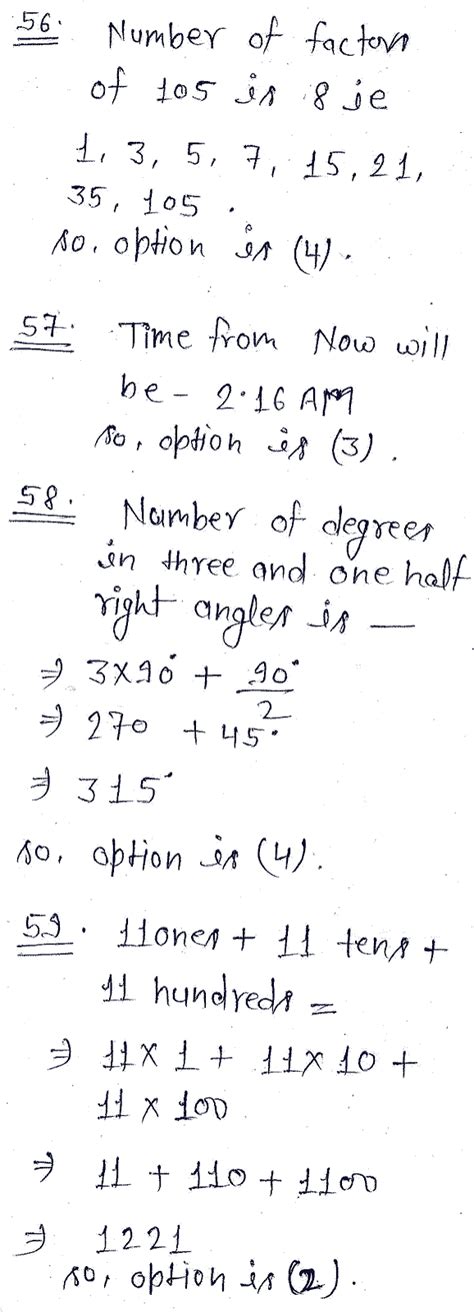 56. Number of factors
of 105 is 8 ie
1, 3, 5, 7, 15, 21,
35, 105 .
so, option is (4).
57. Time from Now will
be - 2.16 AM
so, option is (3).
58. Number of degrees
in three and one half
right angles is —
⇒ 3×90° + 90°/2
⇒ 270 + 45°
⇒ 315°
so, option is (4).
59. 11ones + 11 tens +
11 hundreds =
⇒ 11 × 1 + 11 × 10 +
11 × 100
⇒ 11 + 110 + 1100
⇒ 1221
so, option is (2).